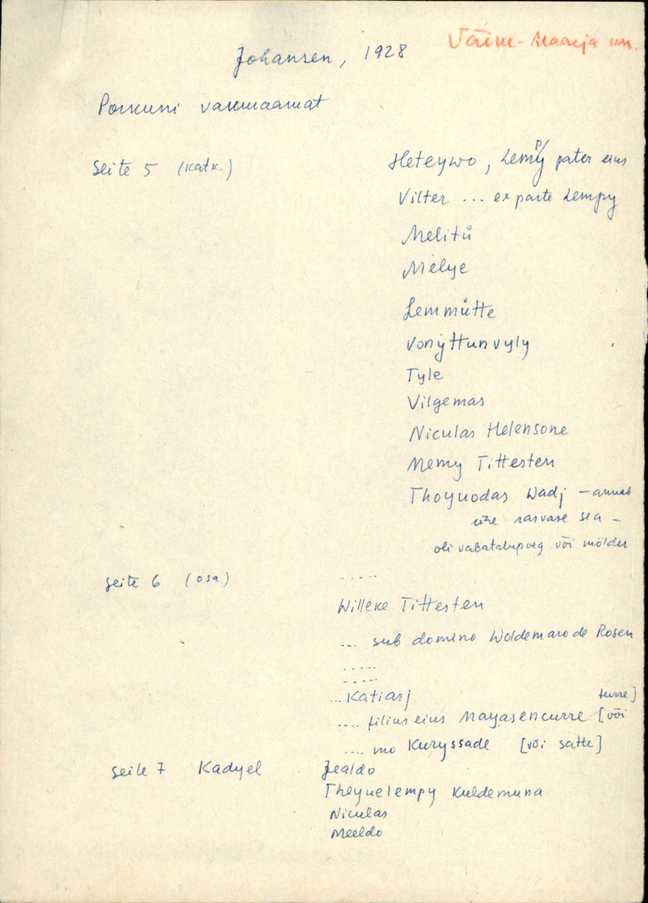 Johansen, 1928
Väike-Maarja
Porkuni vakuraamat
Seite 5 (katk.)
Heteywo, Lempy pater eius
Vilter ... ex parte Lempy
Melitů
Melye
Lemmůtte
Vonÿttunvyly
Tyle
Vilgemas
Niculas Helensone
Memy Tittesten
Thoynodas Wadj – annab
ühe rasvase sea –
oli vabatalupoeg või mölder
Seite 6 (osa)
.....
Willeke Tittesten
... sub domino Woldemaro de Rosen
.....
.....
...Katiasj
turre]
.... filius eius Mayasencurre [või
.... mo Kuryssade [või satte]
Seite 7 Kadyel
Jealdo
Theyuelempy Kuldemuna
Niculas
Meeldo